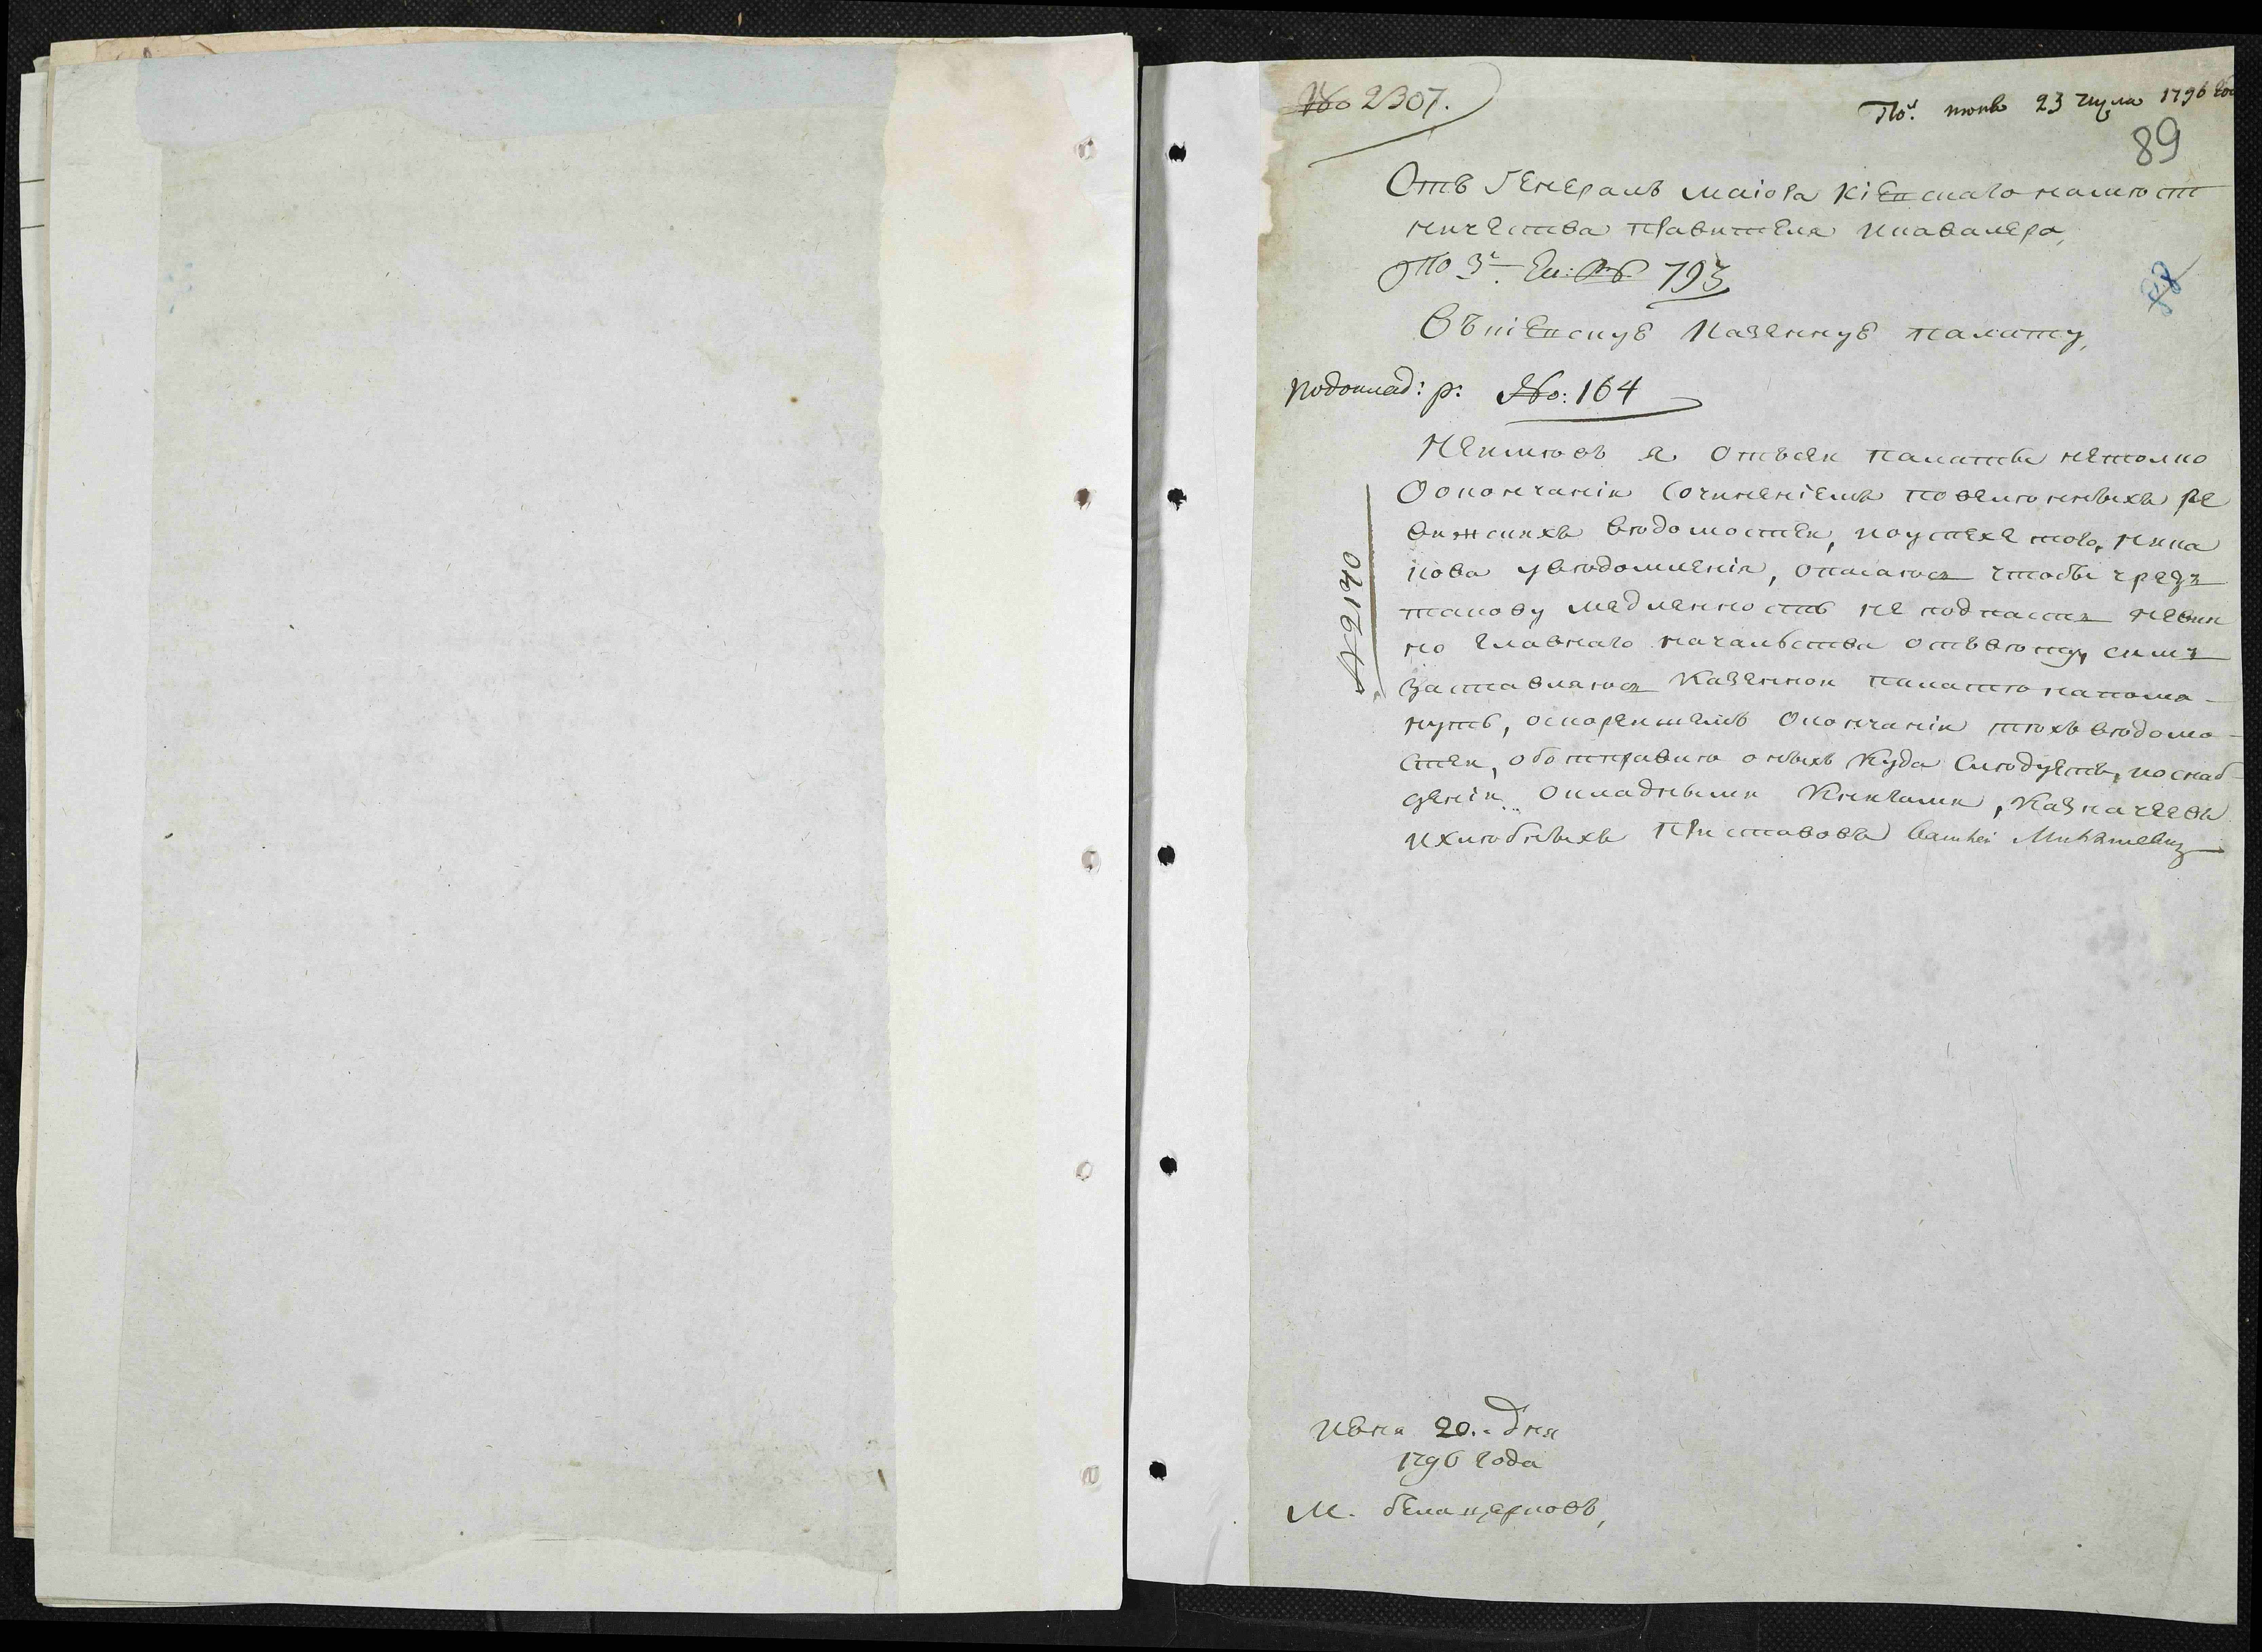 No 2307.
По: июнь 23 числа 1796 го
89
Отъ Генералъ маіора Кіевскаго намѣст
ничества правителя икавалера,
По 3й Эк: № 793
88
Въ кіевскую Казенную палату,
Подоклад: р: No: 164
№ 2140
Неимѣвъ я отъсей палаты нетолко
Оокончаніи Сочиненіемъ повелѣнныхъ Ре
визскихъ вѣдомостей, иоуспехе того, ника
кова увѣдомленія, опасаюсь чтобы чрезъ
такову медленность не подпасть невин
но главнаго начальства отъвѣту, симъ
заставляюсь Казенной палатѣ напомя-
нуть, оскорейшемъ Окончаніи тѣхъ вѣдомо-
стей, обо отправкѣ оныхъ Куда Слѣдуетъ, иоснаб-
деніи окладными Книгами, Казначеевъ
ихлѣбныхъ Приставовъ
Июня 20. Дня
1796 года
М. бела церковь,